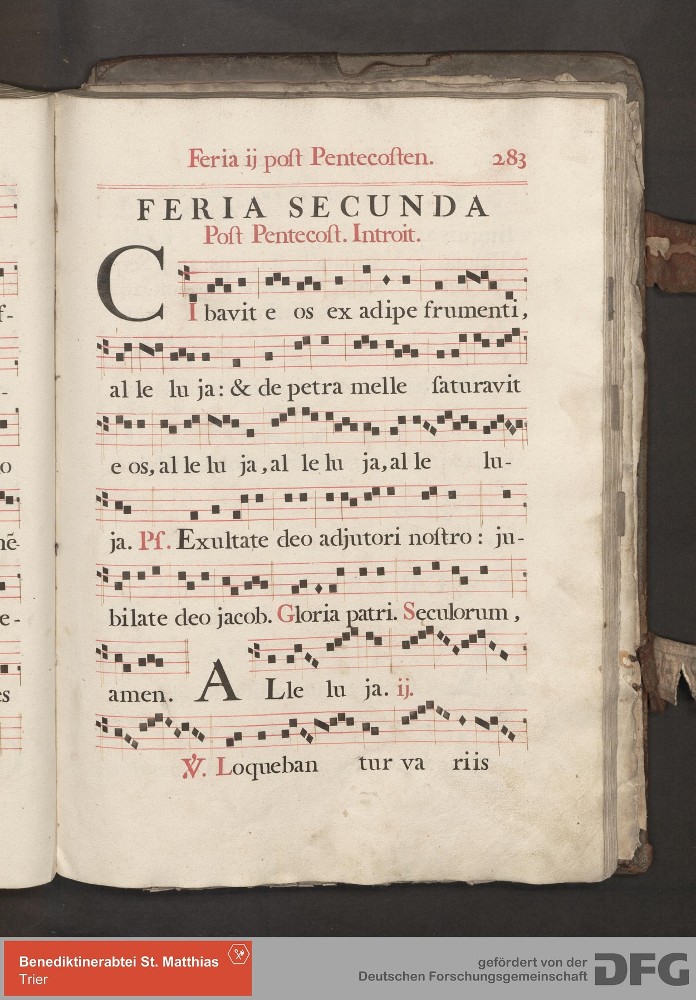 Feria ij poſt Pentecoſten. 283
FERIA SECUNDA
Poſt Pentecoſt. Introit.
CIbavit e os ex adipe frumenti,
al le lu ja: & de petra melle ſaturavit
e os, al le lu ja, al le lu ja, al le lu-
ja. Pſ. Exultate deo adjutori noſtro: ju-
bilate deo jacob. Gloria patri. Sęculorum,
amen. ALle lu ja. ij.
℣. Loqueban tur va riis
f-
-
o
mẽ-
e-
es
Benediktinerabtei St. Matthias
Trier
gefördert von der
Deutschen Forschungsgemeinschaft DFG